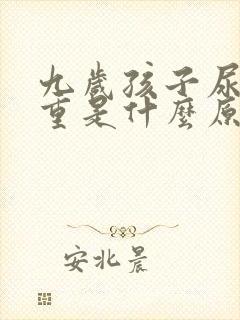 九歲孩子尿
重是什麼原
安北晨